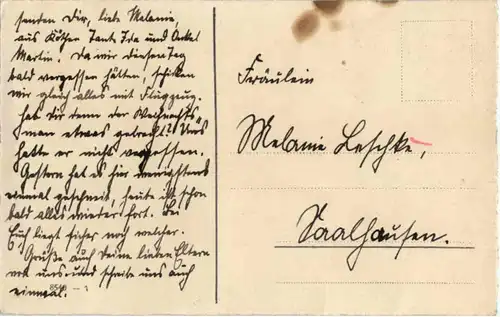 senden Dir, liebe Melanie,
aus Köthen Tante Ida und Onkel
Martin. Da wir diesen Tag
bald vergessen hätten, schicken
wir gleich alles mit Flugzeug.
Hat Dir denn der Weihnachts-
man etwas gebracht? Uns
hatte er nicht vergessen.
Gestern hat es hier wenigstens
einmal geschneit, heute ist schon
bald alles wieder fort. Bei
Euch liegt sicher noch welcher.
Grüße auch Deine lieben Eltern
von uns und schreibe uns auch
einmal.
Fräulein
Melanie Leschke,
Saalhausen.